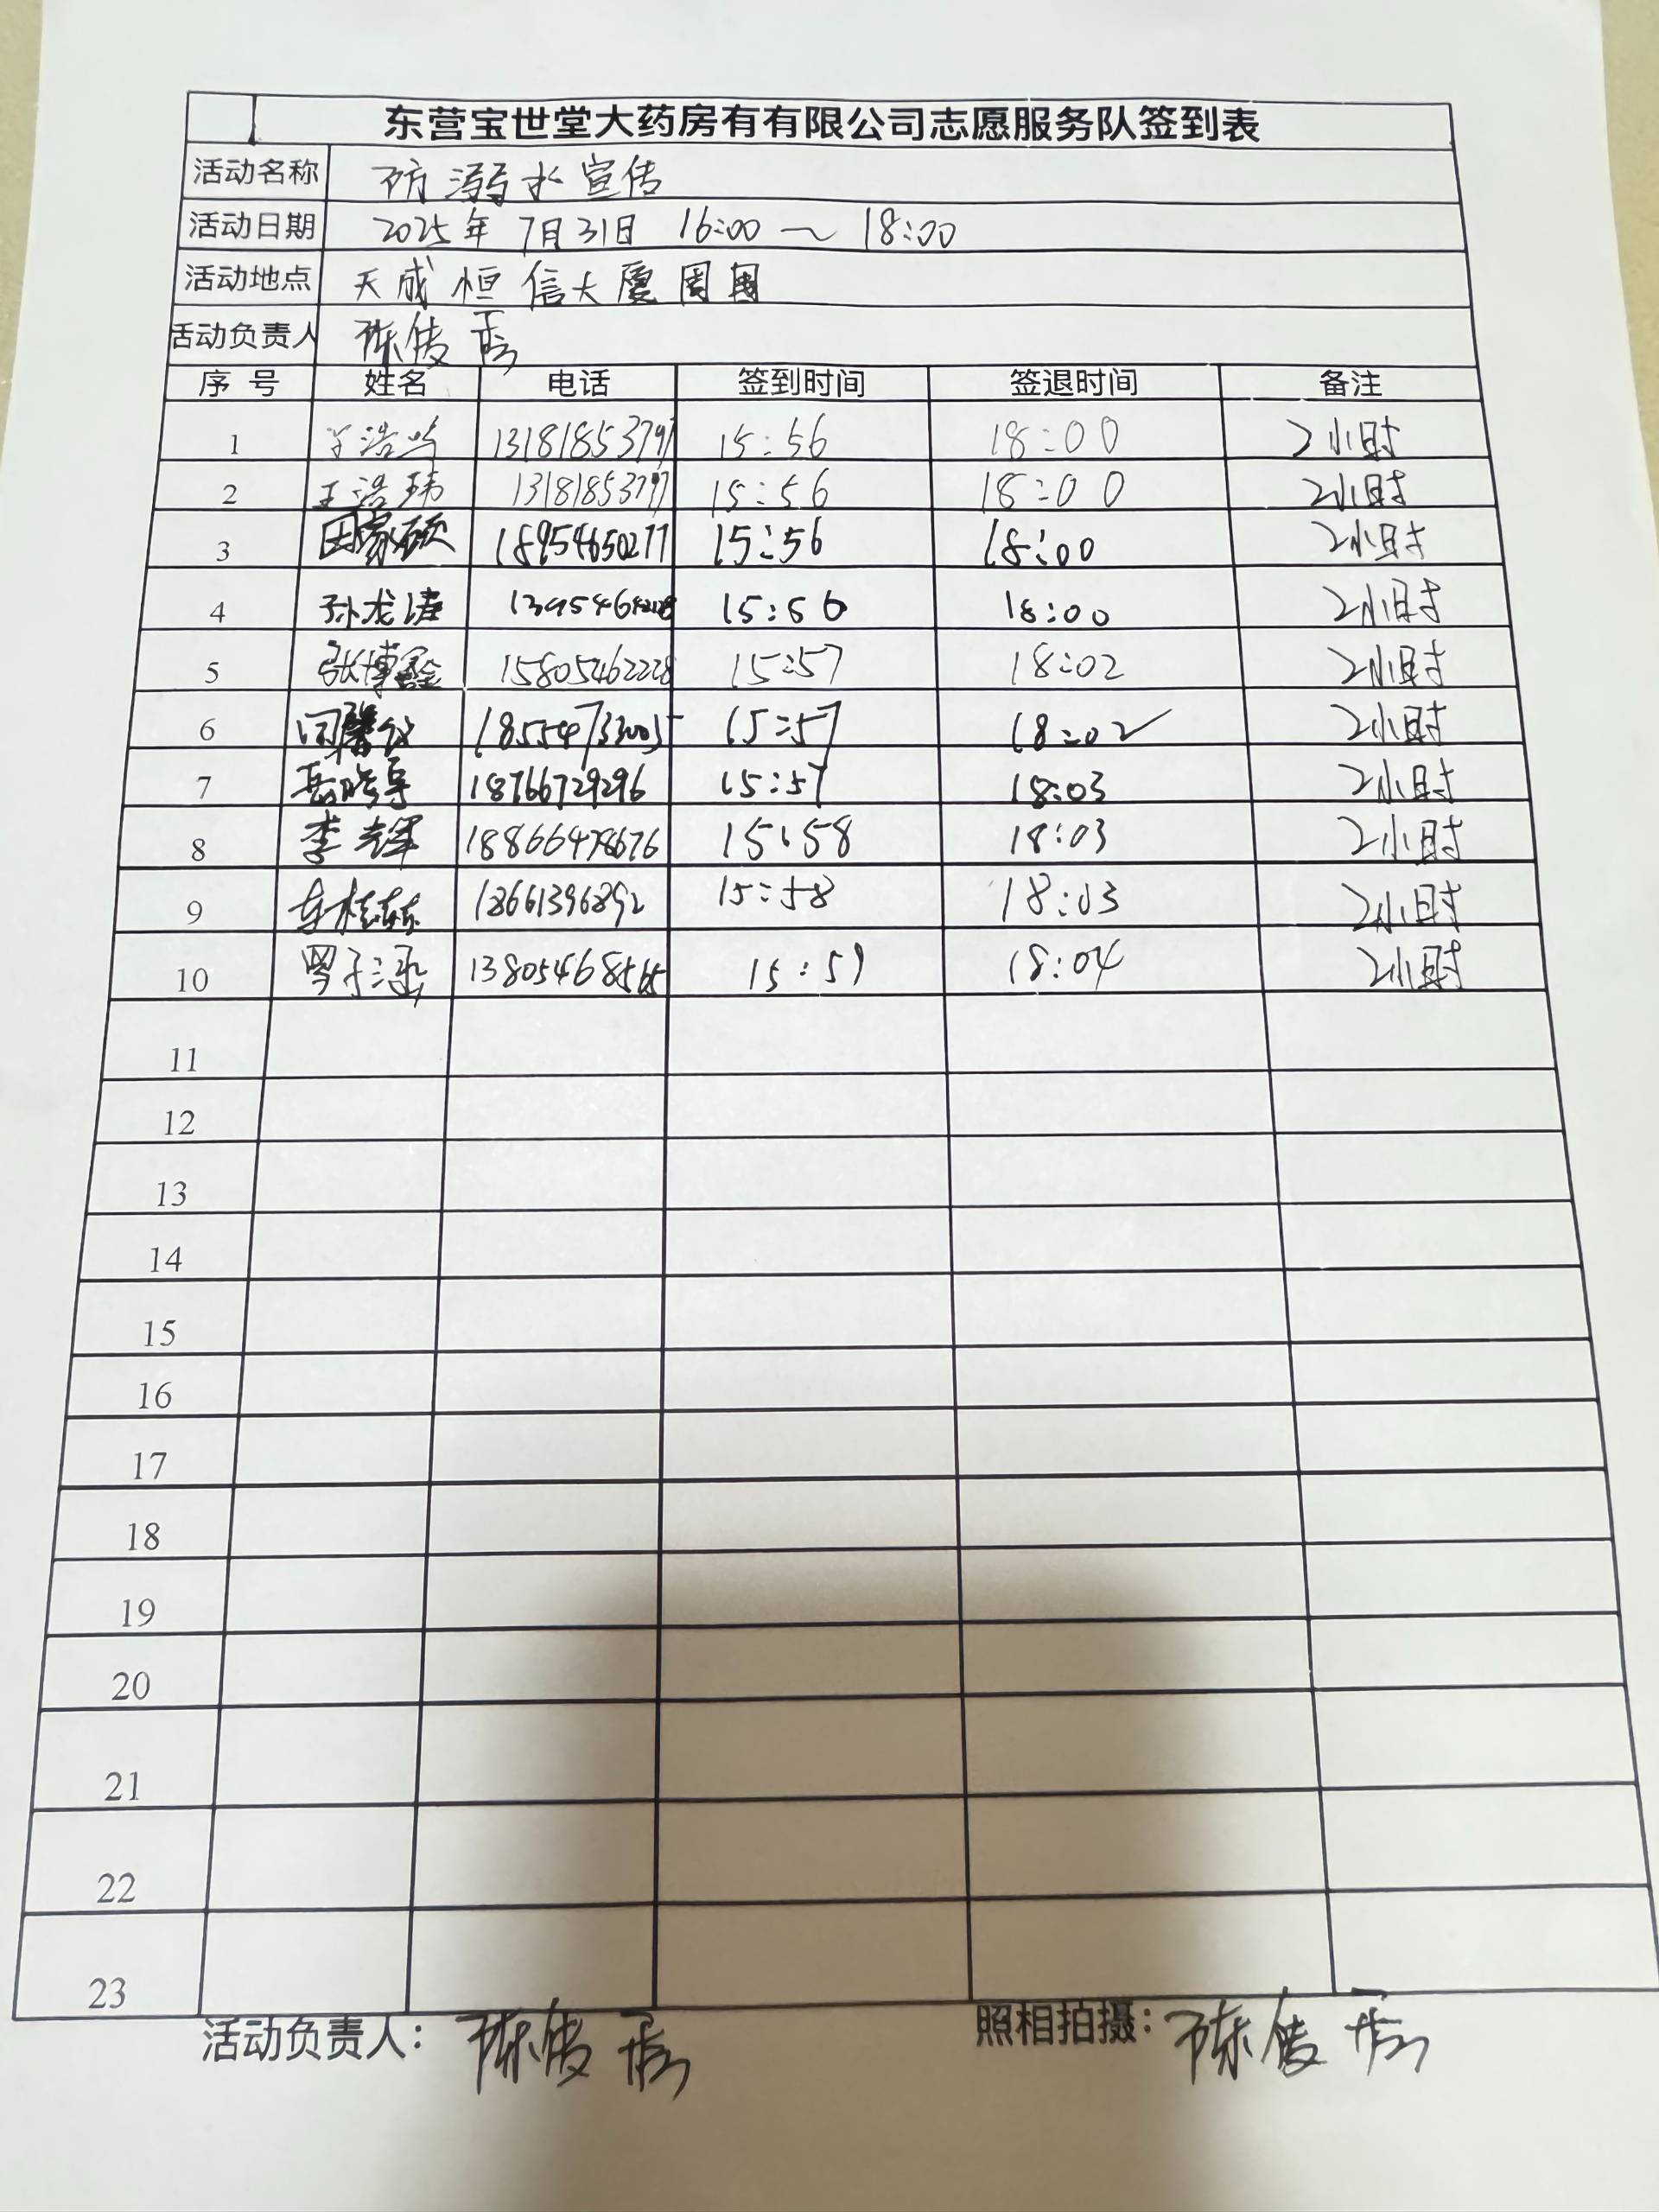 东营宝世堂大药房有有限公司志愿服务队签到表
活动名称 防溺水宣传
活动日期 2025年7月31日 16:00～18:00
活动地点 天成恒信大厦周围
活动负责人 陈俊秀
序号 姓名 电话 签到时间 签退时间 备注
1 王浩鸣 13181853797 15:56 18:00 2小时
2 王浩玮 13181853797 15:56 18:00 2小时
3 田家硕 18954650277 15:56 18:00 2小时
4 孙龙涛 15:56 18:00 2小时
5 张博鑫 15805462228 15:57 18:02 2小时
6 闫馨仪 15:57 18:02 2小时
7 18766729296 15:57 18:03 2小时
8 李辉 15:58 18:03 2小时
9 18661396892 15:58 18:03 2小时
10 罗子涵 15:59 18:04 2小时
11
12
13
14
15
16
17
18
19
20
21
22
23
活动负责人：陈俊秀 照相拍摄：陈俊秀